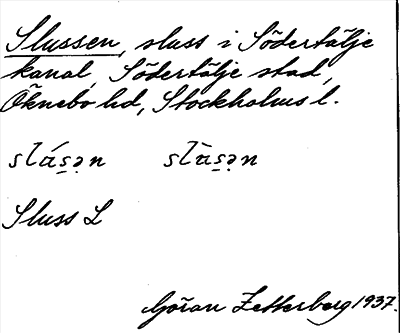 Slussen, sluss i Södertälje
kanal, Södertälje stad,
Öknebo hd, Stockholms l.
slás̱ə̣n slàs̱ə̣n
Sluss L
Göran Zetterberg 1937.